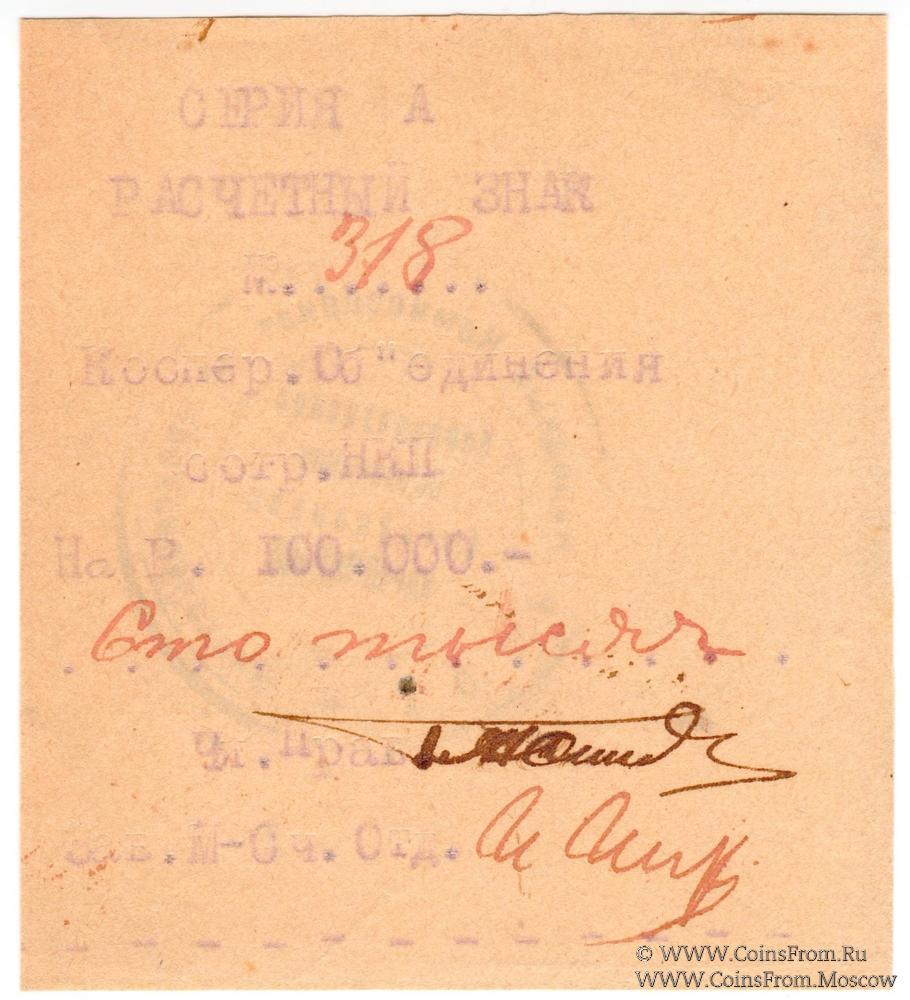 СЕРИЯ А
РАСЧЕТНЫЙ ЗНАК
№. 318
Коопер.Об"единения
сотр.НКП
На Р. 100.000.-
Сто тысяч
Чл.Прав
Зав.М-Оч.Отд.
© WWW.CoinsFrom.Ru
WWW.CoinsFrom.Moscow